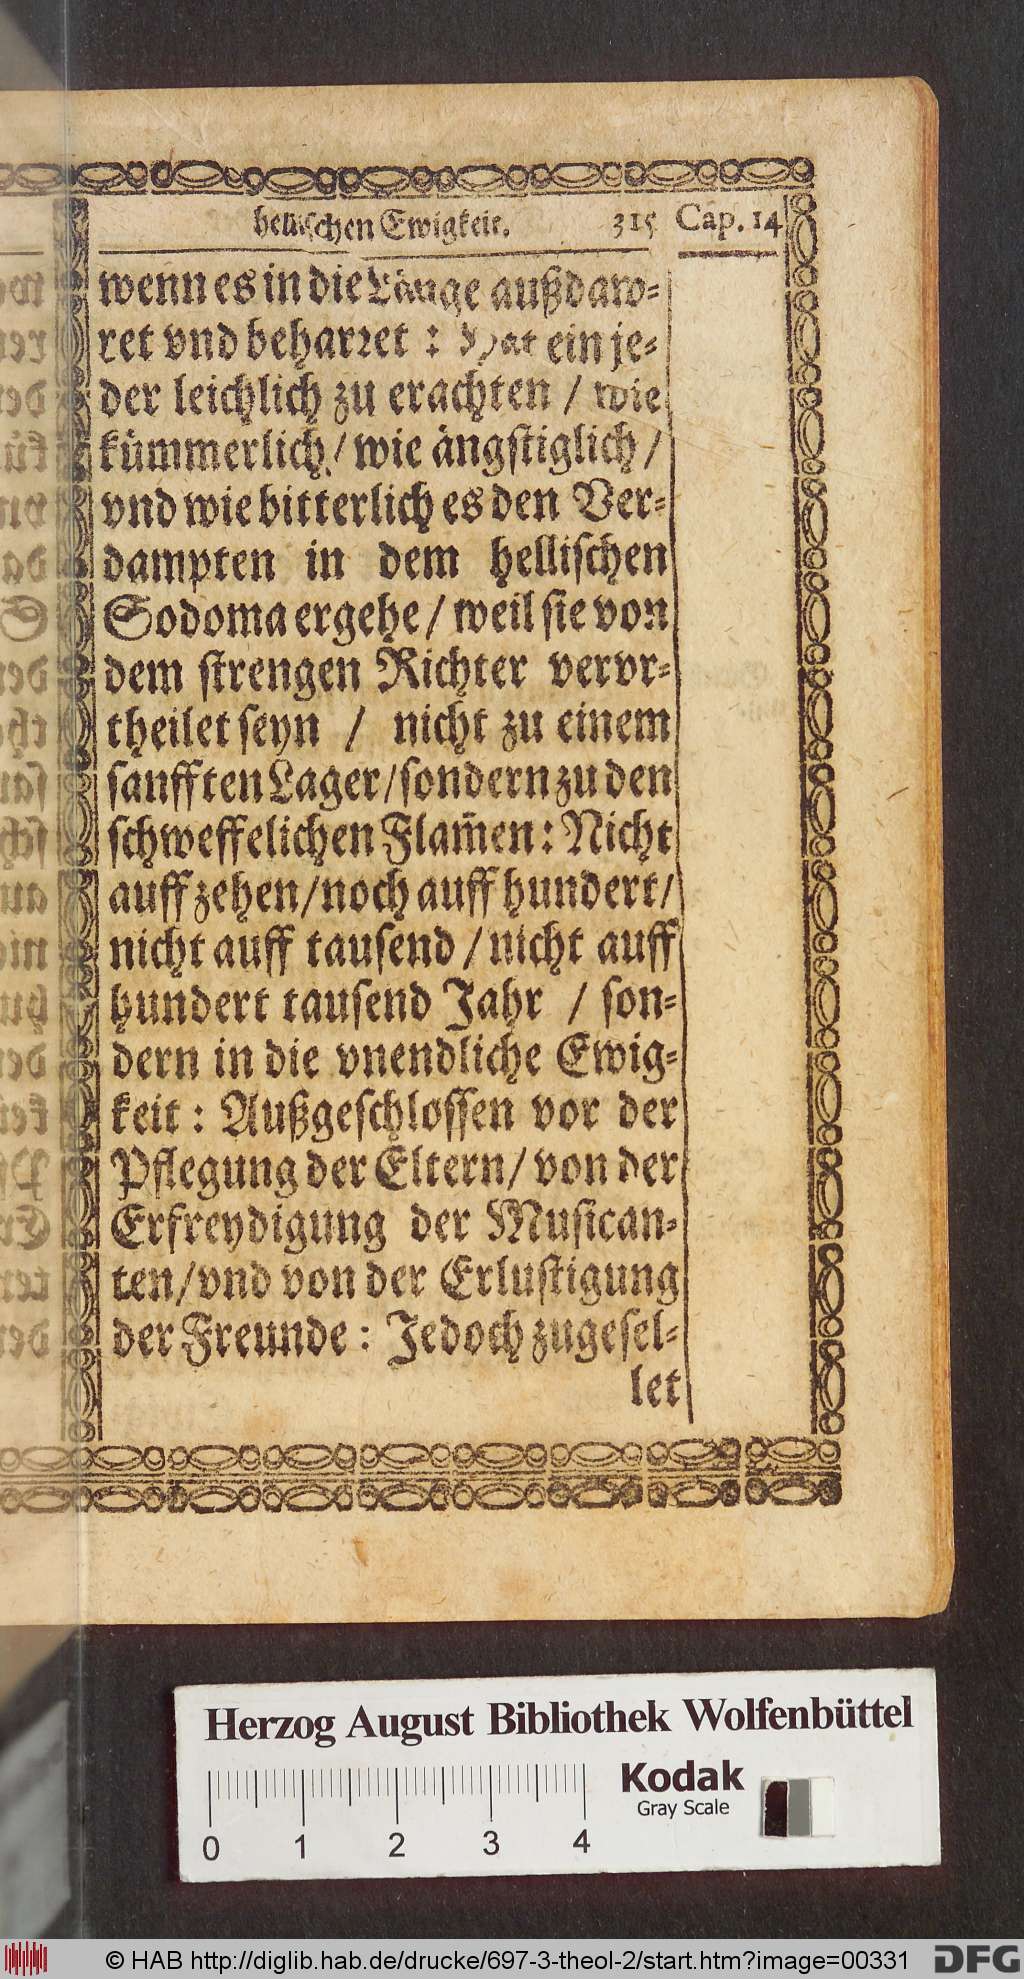 hellischen Ewigkeit. 315 Cap. 14
wenn es in die Länge außdaw-
ret vnd beharret: Hat ein je-
der leichlich zu erachten / wie
kümmerlich / wie ängstiglich /
vnd wie bitterlich es den Ver-
dampten in dem hellischen
Sodoma ergehe / weil sie von
dem strengen Richter vervr-
theilet seyn / nicht zu einem
sanfften Lager / sondern zu den
schweffelichen Flam̃en: Nicht
auff zehen / noch auff hundert /
nicht auff tausend / nicht auff
hundert tausend Jahr / son-
dern in die vnendliche Ewig-
keit: Außgeschlossen vor der
Pflegung der Eltern / von der
Erfreydigung der Musican-
ten / vnd von der Erlustigung
der Freunde: Jedoch zugesel-
let
Herzog August Bibliothek Wolfenbüttel
Kodak
Gray Scale
0 1 2 3 4
© HAB http://diglib.hab.de/drucke/697-3-theol-2/start.htm?image=00331 DFG